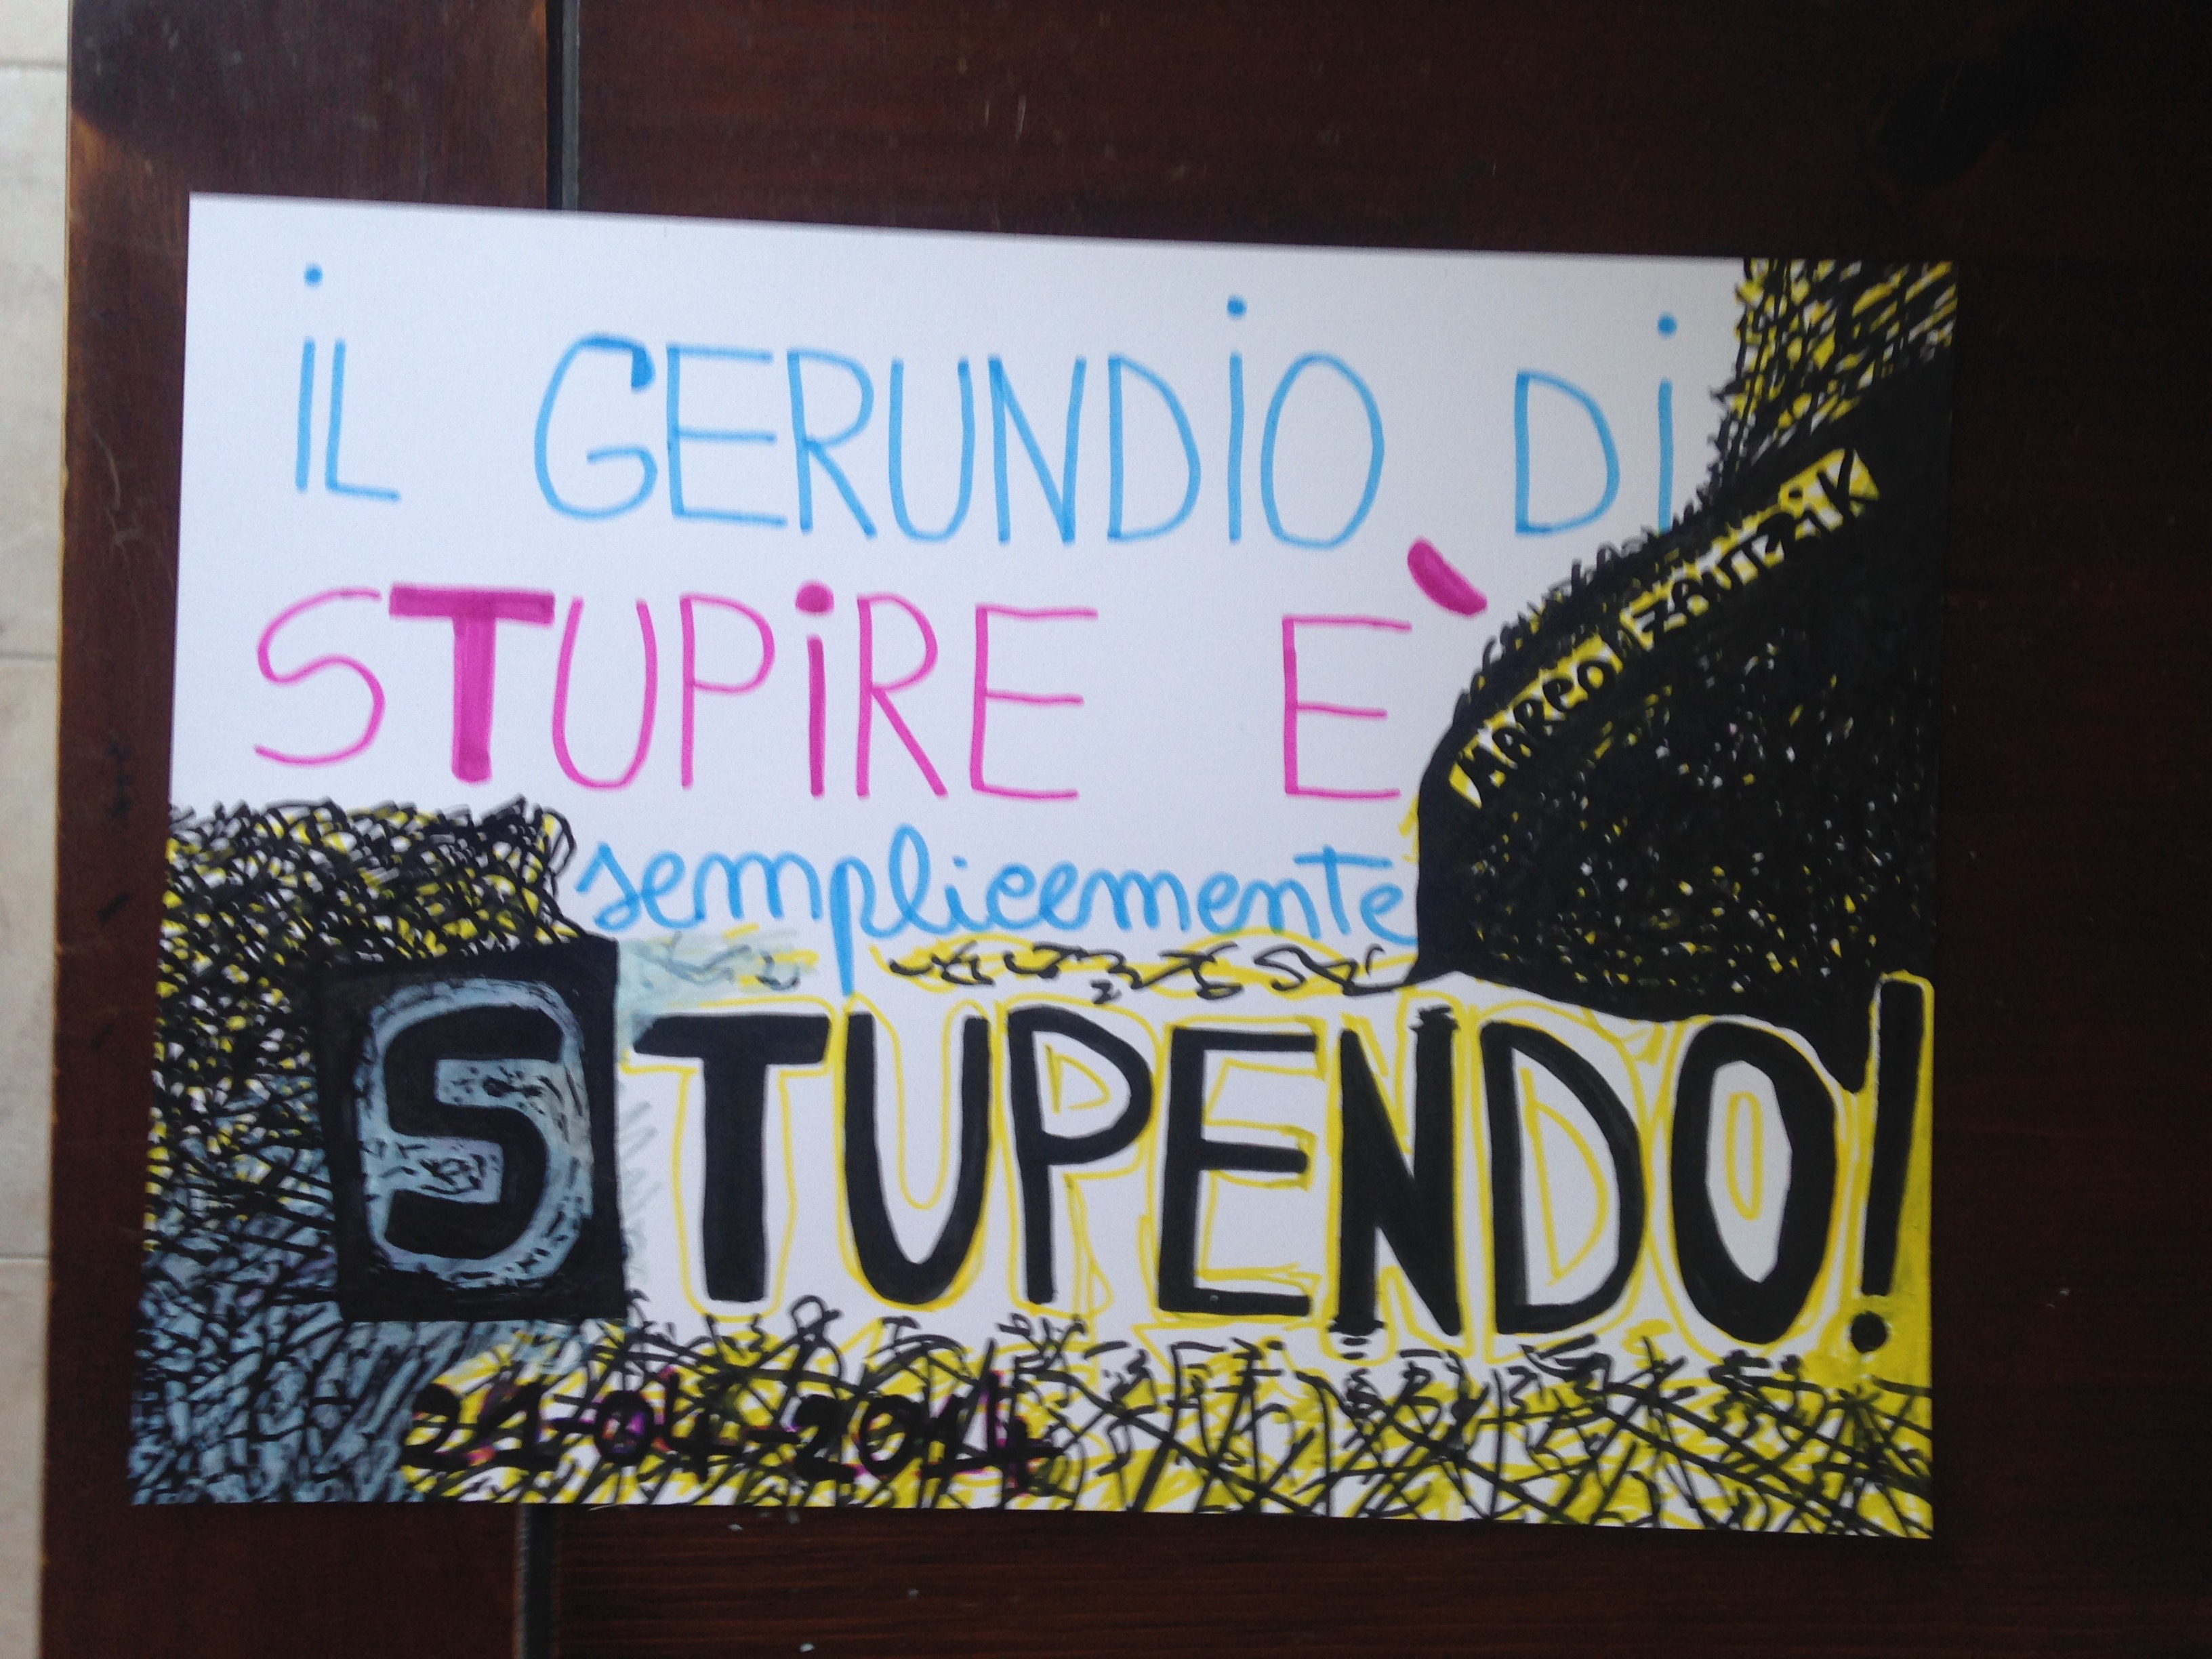 iL GERUNDiO Di
STUPiRE E`
semplicemente
STUPENDO!
MARCO
21-04-2014